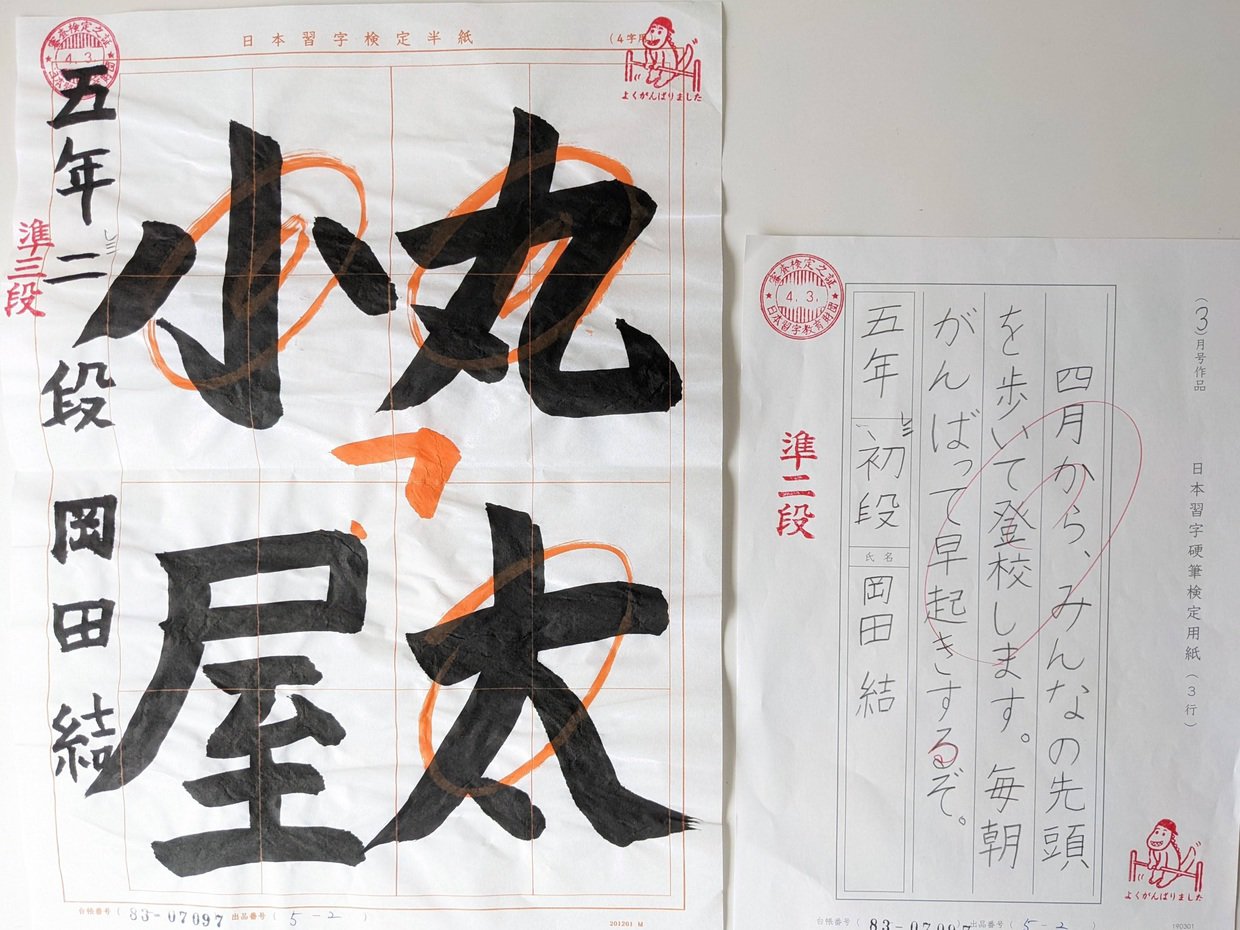 日本習字検定半紙
(4字用)
審査検定之証
4.3.
よくがんばりました
丸太
小屋
五年二段 岡田結
準三段
台帳番号(83-07097)出品番号(5-2)
201201 M
(3)月号作品
日本習字硬筆検定用紙(3行)
四月から、みんなの先頭
を歩いて登校します。毎朝
がんばって早起きするぞ。
五年 初段 氏名 岡田結
審査検定之証
4.3.
日本習字教育財団
準二段
よくがんばりました
台帳番号(83-07097)出品番号(5-2)
190301